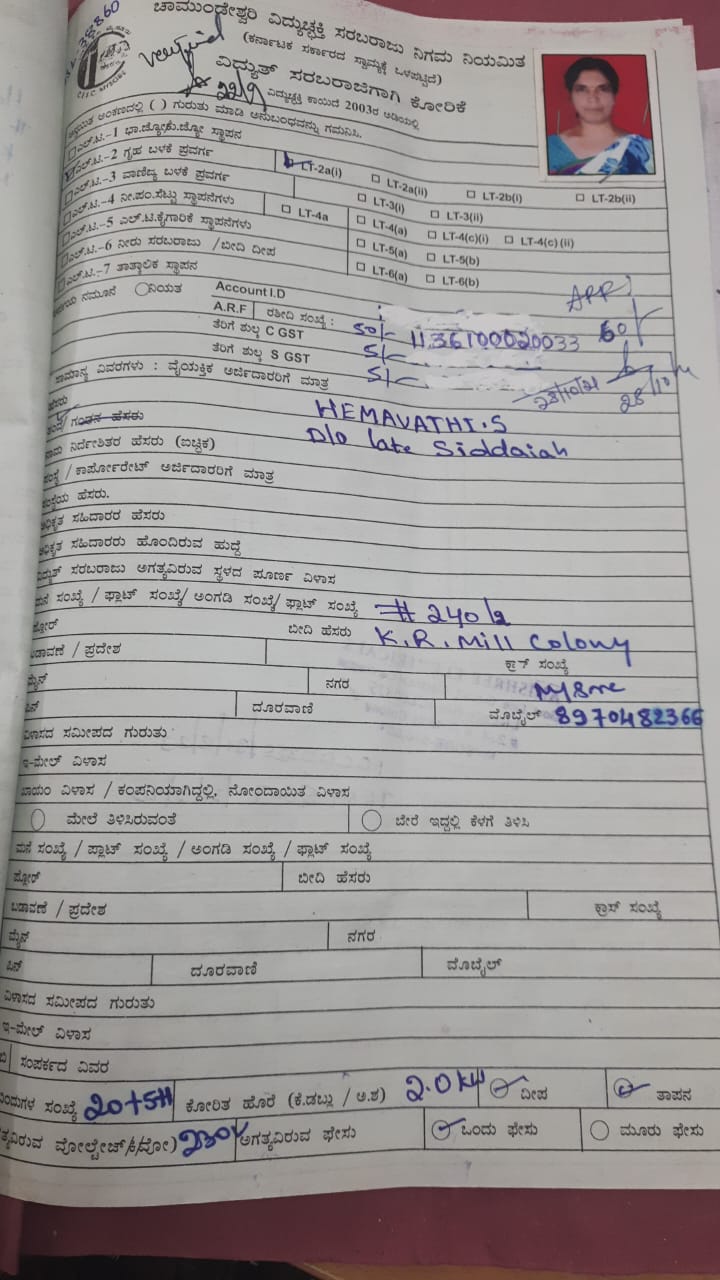 ಚಾಮುಂಡೇಶ್ವರಿ ವಿದ್ಯುಚ್ಛಕ್ತಿ ಸರಬರಾಜು ನಿಗಮ ನಿಯಮಿತ
(ಕರ್ನಾಟಕ ಸರ್ಕಾರದ ಸ್ವಾಮ್ಯಕ್ಕೆ ಒಳಪಟ್ಟಿದೆ)
verified
ವಿದ್ಯುತ್ ಸರಬರಾಜಿಗಾಗಿ ಕೋರಿಕೆ
22/9 ವಿದ್ಯುಚ್ಛಕ್ತಿ ಕಾಯಿದೆ 2003ರ ಅಡಿಯಲ್ಲಿ
ಅಂಕಣದಲ್ಲಿ ( ) ಗುರುತು ಮಾಡಿ ಅನುಬಂಧವನ್ನು ಗಮನಿಸಿ.
ಎಲ್.ಟಿ.-1 ಭಾ.ಜ್ಯೋ/ಕು.ಜ್ಯೋ ಸ್ಥಾಪನ
ಎಲ್.ಟಿ.-2 ಗೃಹ ಬಳಕೆ ಪ್ರವರ್ಗ LT-2a(i) LT-2a(ii) LT-2b(i) LT-2b(ii)
ಎಲ್.ಟಿ.-3 ವಾಣಿಜ್ಯ ಬಳಕೆ ಪ್ರವರ್ಗ LT-3(i) LT-3(ii)
ಎಲ್.ಟಿ.-4 ನೀ.ಪಂ.ಸೆಟ್ಟು ಸ್ಥಾಪನೆಗಳು LT-4a LT-4(a) LT-4(c)(i) LT-4(c)(ii)
ಎಲ್.ಟಿ.-5 ಎಲ್.ಟಿ.ಕೈಗಾರಿಕೆ ಸ್ಥಾಪನೆಗಳು LT-5(a) LT-5(b)
ಎಲ್.ಟಿ.-6 ನೀರು ಸರಬರಾಜು /ಬೀದಿ ದೀಪ LT-6(a) LT-6(b)
ಎಲ್.ಟಿ.-7 ತಾತ್ಕಾಲಿಕ ಸ್ಥಾಪನ
ನಮೂನೆ ನಿಯತ Account I.D
A.R.F ರಶೀದಿ ಸಂಖ್ಯೆ : 50/- 1136100020033 60/-
ತೆರಿಗೆ ಶುಲ್ಕ C GST 5/-
ತೆರಿಗೆ ಶುಲ್ಕ S GST 5/- 28/10/21 28/10
ಸಾಮಾನ್ಯ ವಿವರಗಳು : ವೈಯಕ್ತಿಕ ಅರ್ಜಿದಾರರಿಗೆ ಮಾತ್ರ
ಹೆಸರು HEMAVATHI.S
ತಂದೆ/ ಗಂಡನ ಹೆಸರು D/o late Siddaiah
ನಾಮ ನಿರ್ದೇಶಿತರ ಹೆಸರು (ಐಚ್ಛಿಕ)
ಸಂಸ್ಥೆ / ಕಾರ್ಪೋರೇಟ್ ಅರ್ಜಿದಾರರಿಗೆ ಮಾತ್ರ
ಸಂಸ್ಥೆಯ ಹೆಸರು.
ಅಧಿಕೃತ ಸಹಿದಾರರ ಹೆಸರು
ಅಧಿಕೃತ ಸಹಿದಾರರು ಹೊಂದಿರುವ ಹುದ್ದೆ
ವಿದ್ಯುತ್ ಸರಬರಾಜು ಅಗತ್ಯವಿರುವ ಸ್ಥಳದ ಪೂರ್ಣ ವಿಳಾಸ
ಮನೆ ಸಂಖ್ಯೆ / ಪ್ಲಾಟ್ ಸಂಖ್ಯೆ/ ಅಂಗಡಿ ಸಂಖ್ಯೆ/ ಫ್ಲಾಟ್ ಸಂಖ್ಯೆ # 240/2
ಫ್ಲೋರ್ ಬೀದಿ ಹೆಸರು K.R.Mill Colony
ಬಡಾವಣೆ / ಪ್ರದೇಶ ಕ್ರಾಸ್ ಸಂಖ್ಯೆ
ಮೈನ್ ನಗರ Mysore
ಪಿನ್ ದೂರವಾಣಿ ಮೊಬೈಲ್ 8970482366
ವಿಳಾಸದ ಸಮೀಪದ ಗುರುತು
ಇ-ಮೇಲ್ ವಿಳಾಸ
ಖಾಯಂ ವಿಳಾಸ / ಕಂಪನಿಯಾಗಿದ್ದಲ್ಲಿ, ನೋಂದಾಯಿತ ವಿಳಾಸ
ಮೇಲೆ ತಿಳಿಸಿರುವಂತೆ ಬೇರೆ ಇದ್ದಲ್ಲಿ ಕೆಳಗೆ ತಿಳಿಸಿ
ಮನೆ ಸಂಖ್ಯೆ / ಪ್ಲಾಟ್ ಸಂಖ್ಯೆ / ಅಂಗಡಿ ಸಂಖ್ಯೆ / ಫ್ಲಾಟ್ ಸಂಖ್ಯೆ
ಫ್ಲೋರ್ ಬೀದಿ ಹೆಸರು
ಬಡಾವಣೆ / ಪ್ರದೇಶ ಕ್ರಾಸ್ ಸಂಖ್ಯೆ
ಮೈನ್ ನಗರ
ಪಿನ್ ದೂರವಾಣಿ ಮೊಬೈಲ್
ವಿಳಾಸದ ಸಮೀಪದ ಗುರುತು
ಇ-ಮೇಲ್ ವಿಳಾಸ
ಸಂಪರ್ಕದ ವಿವರ
ಸಂಖ್ಯೆ 20+5H ಕೋರಿತ ಹೊರೆ (ಕೆ.ಡಬ್ಲು / ಅ.ಶ) 2.0 kW ದೀಪ ತಾಪನ
ವೋಲ್ಟೇಜ್ 230V ಅಗತ್ಯವಿರುವ ಫೇಸು ಒಂದು ಫೇಸು ಮೂರು ಫೇಸು